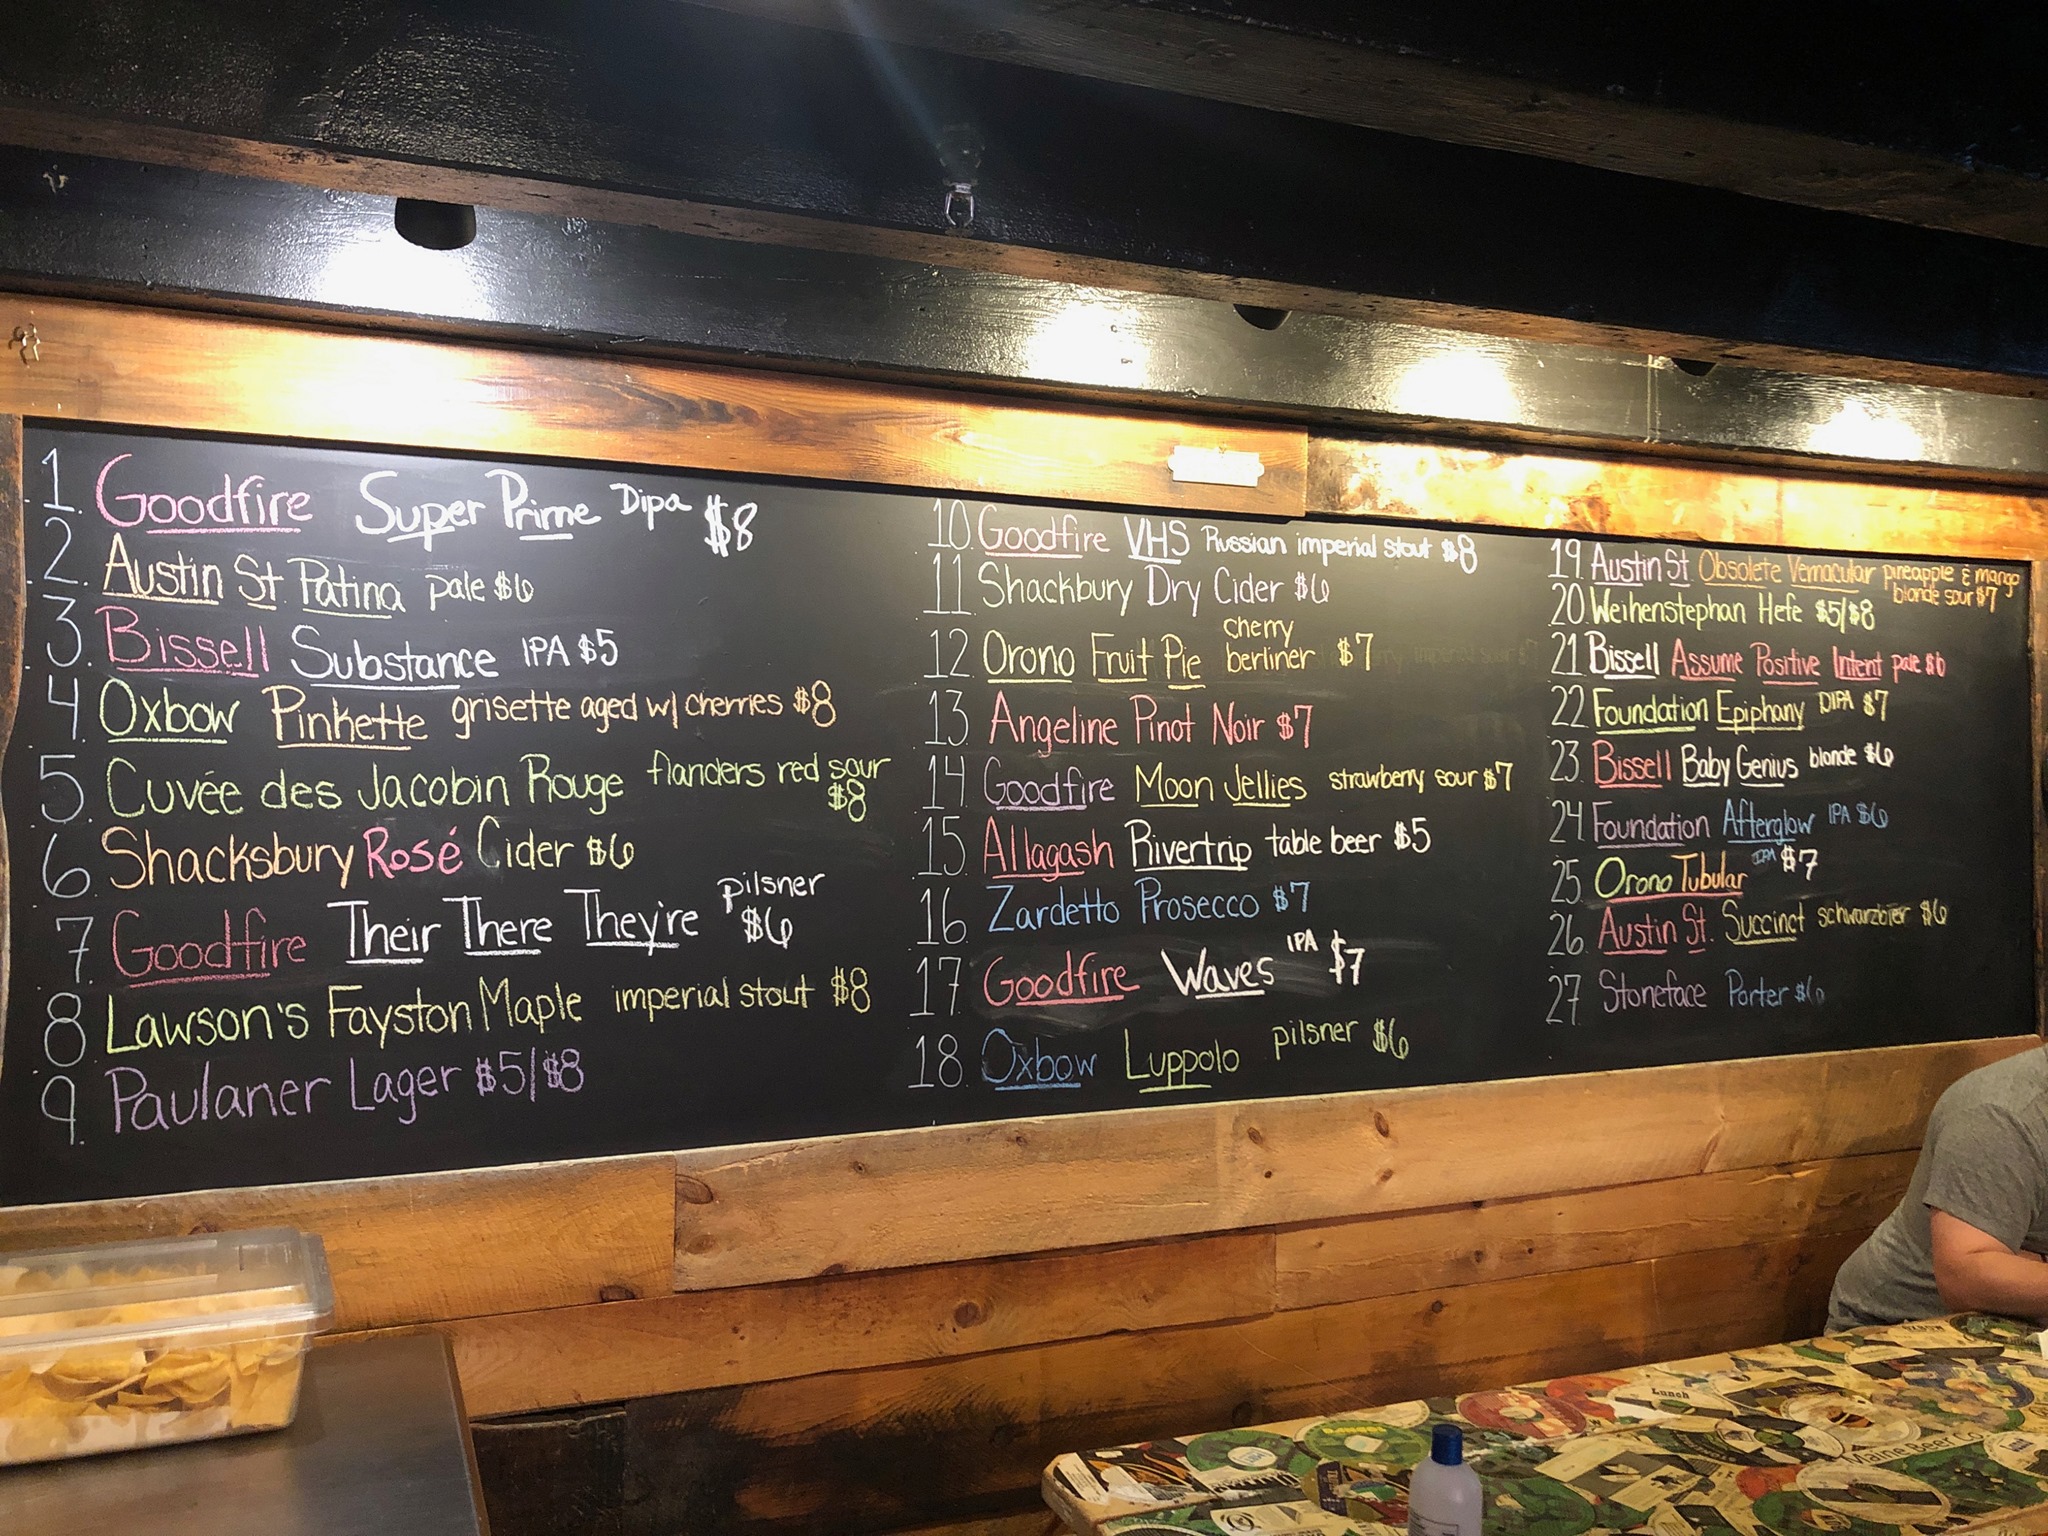 1. Goodfire Super Prime Dipa $8
2. Austin St Patina pale $6
3. Bissell Substance IPA $5
4. Oxbow Pinkette grisette aged w/ cherries $8
5. Cuvée des Jacobin Rouge flanders red sour
$8
6. Shacksbury Rosé Cider $6
7. Goodfire Their There They're pilsner
$6
8. Lawson's Fayston Maple imperial stout $8
9. Paulaner Lager $5/$8
10. Goodfire VHS Russian imperial stout $8
11. Shackbury Dry Cider $6
12. Orono Fruit Pie cherry
berliner $7
13. Angeline Pinot Noir $7
14. Goodfire Moon Jellies strawberry sour $7
15. Allagash Rivertrip table beer $5
16. Zardetto Prosecco $7
17. Goodfire Waves IPA $7
18. Oxbow Luppolo pilsner $6
19. Austin St Obsolete Vernacular pineapple & mango
blonde sour $7
20. Weihenstephan Hefe $5/$8
21. Bissell Assume Positive Intent pale $6
22. Foundation Epiphany DIPA $7
23. Bissell Baby Genius blonde $6
24. Foundation Afterglow IPA $6
25. Orono Tubular IPA $7
26. Austin St. Succinct schwarzbier $6
27. Stoneface Porter $6
Lunch
Maine Beer Co.